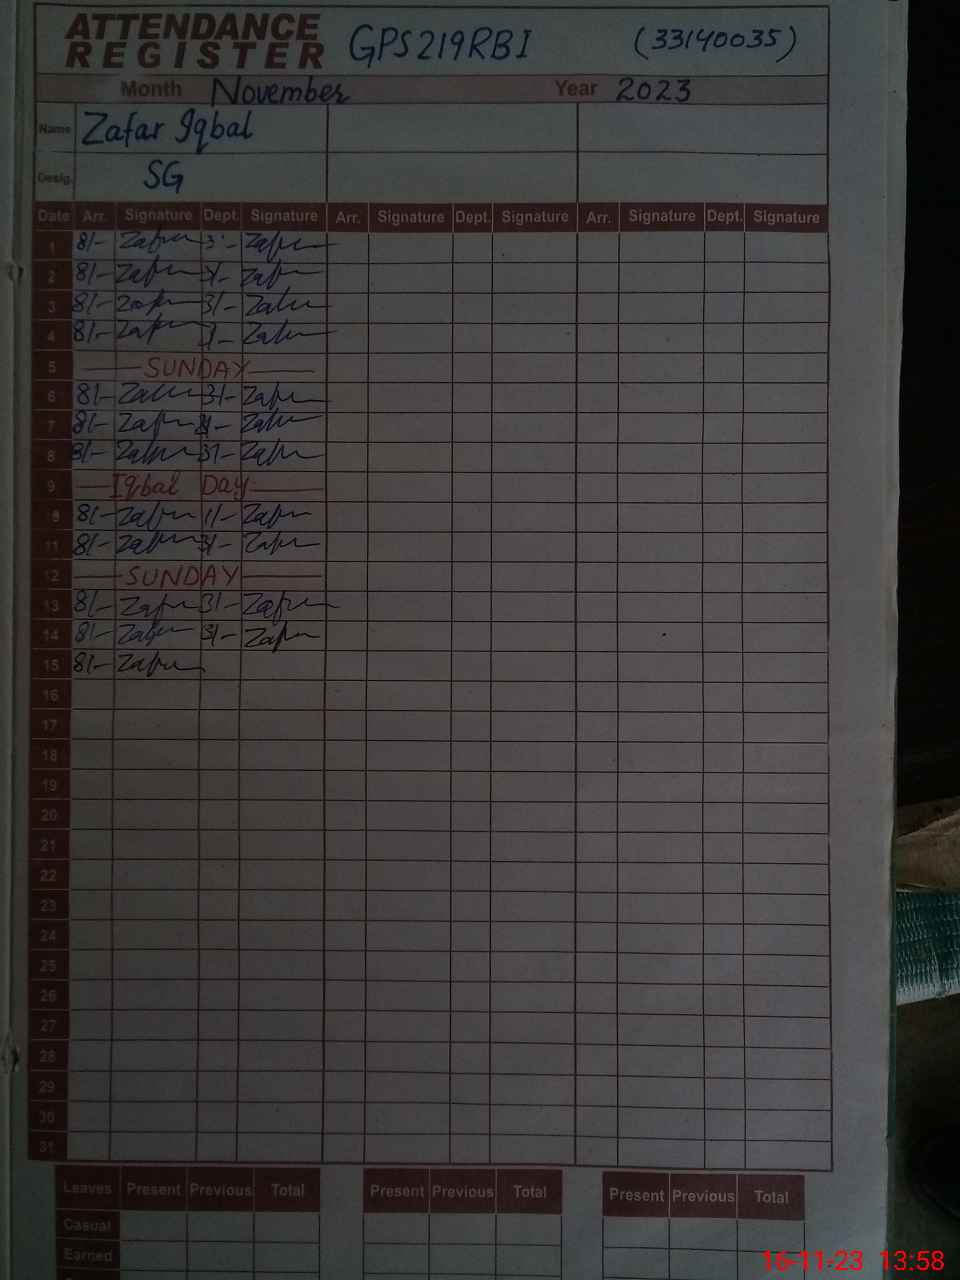 ATTENDANCE
REGISTER GPS219RBI (33140035)
Month November Year 2023
Name Zafar Iqbal
Desig. SG
Date Arr. Signature Dept. Signature Arr. Signature Dept. Signature Arr. Signature Dept. Signature
1 8/- Zafar 3/- Zafar
2 8/- Zafar 3/- Zafar
3 8/- Zafar 3/- Zafar
4 8/- Zafar 3/- Zafar
5 SUNDAY
6 8/- Zafar 3/- Zafar
7 8/- Zafar 3/- Zafar
8 8/- Zafar 3/- Zafar
9 Iqbal Day
10 8/- Zafar 11/- Zafar
11 8/- Zafar 3/- Zafar
12 SUNDAY
13 8/- Zafar 3/- Zafar
14 8/- Zafar 3/- Zafar
15 8/- Zafar
16
17
18
19
20
21
22
23
24
25
26
27
28
29
30
31
Leaves Present Previous Total Present Previous Total Present Previous Total
Casual
Earned
16-11-23 13:58